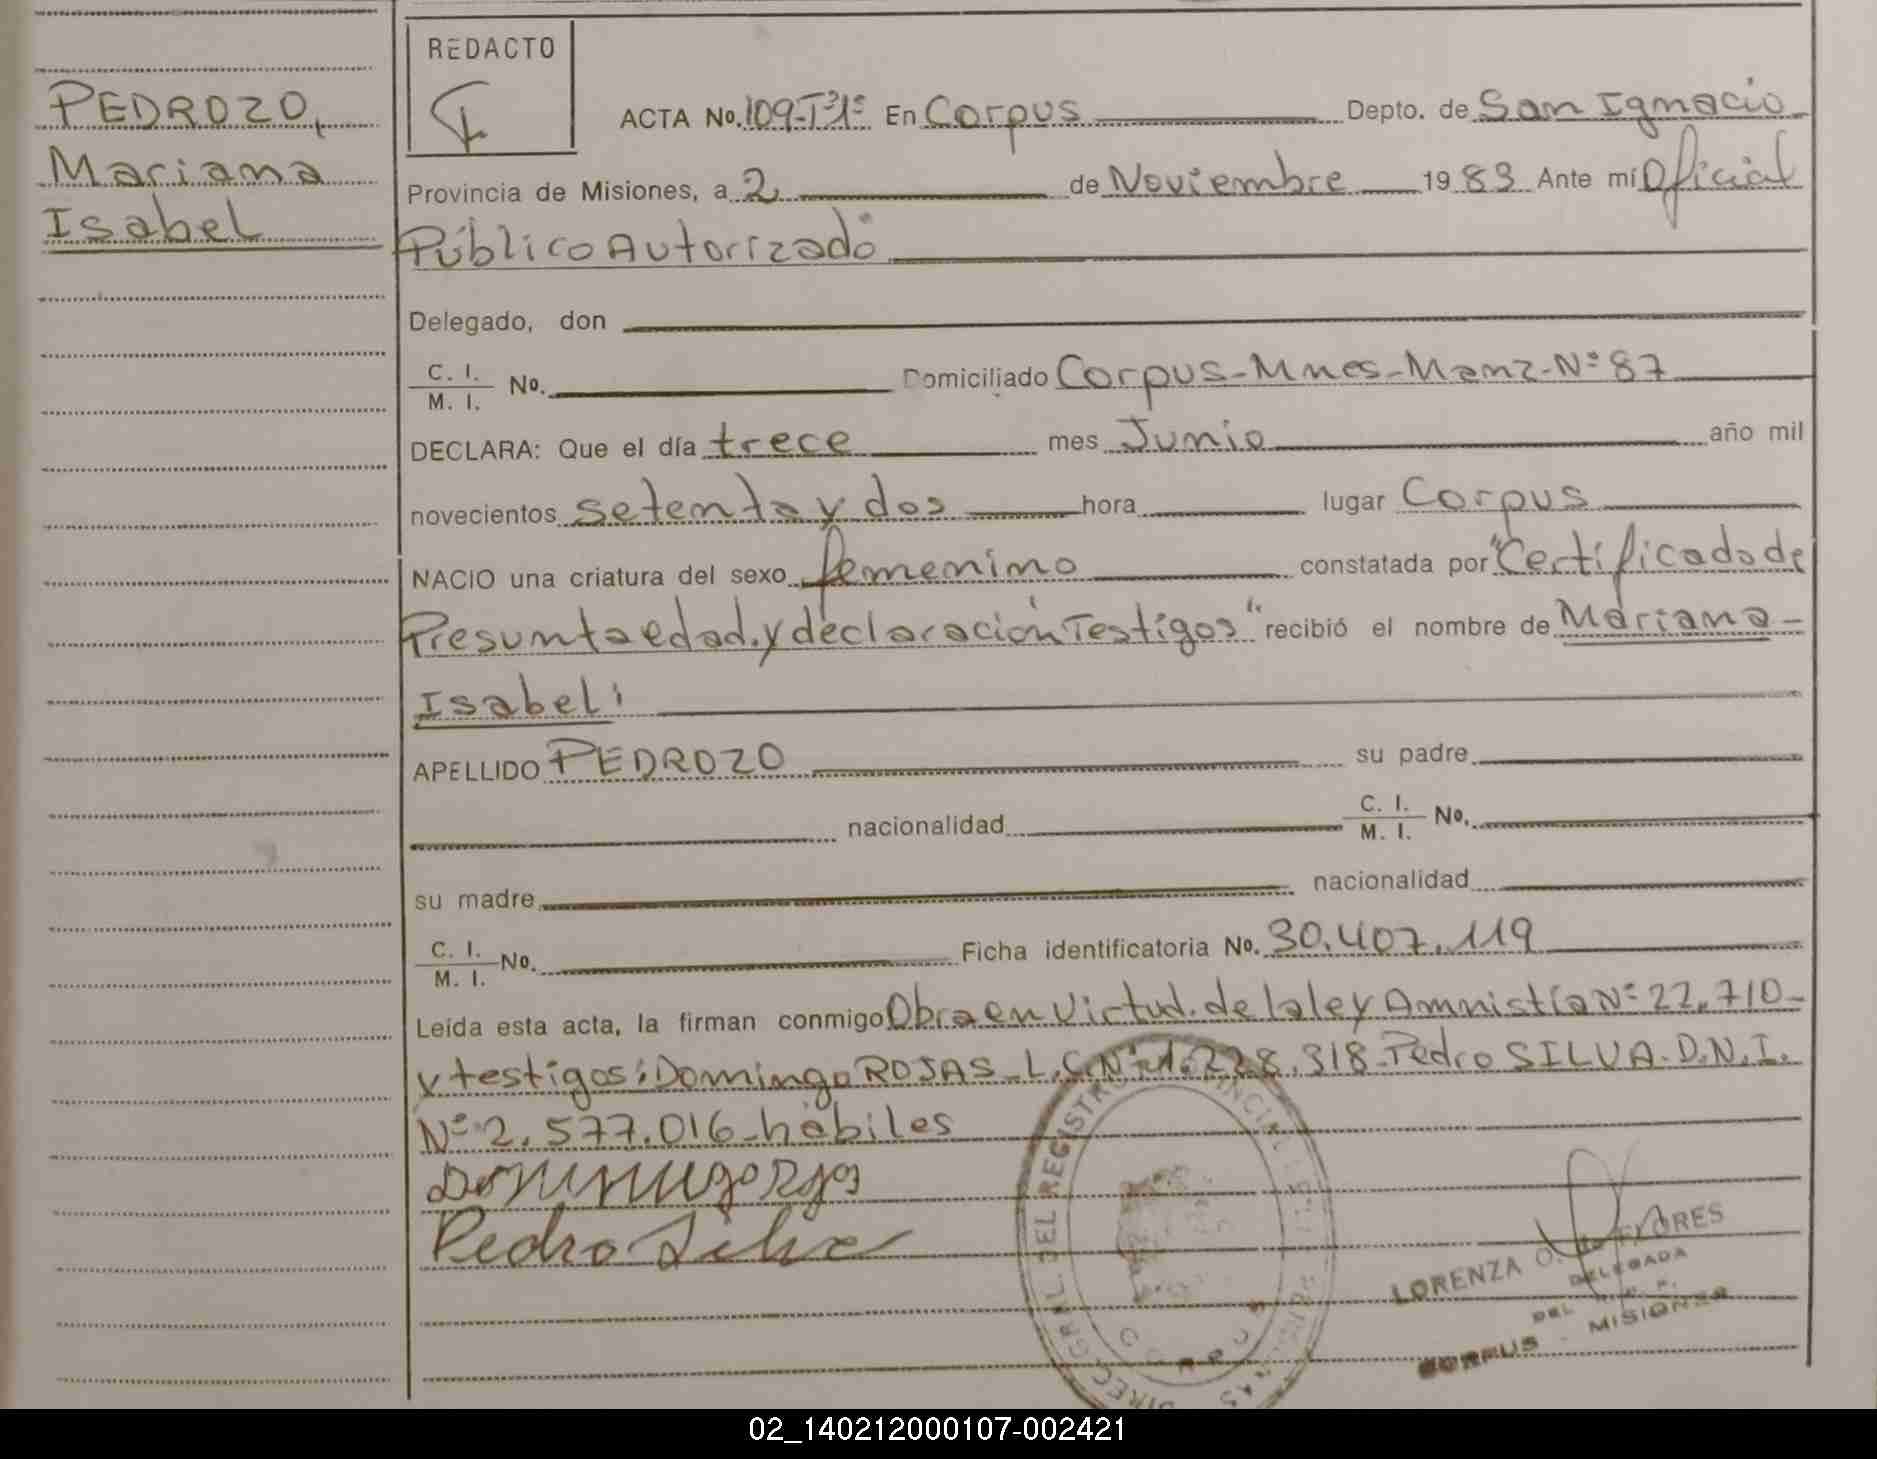 REDACTO
PEDROZO,
Mariana
Isabel
ACTA No. 109-T°1° En Corpus Depto. de San Ignacio
Provincia de Misiones, a 2 de Noviembre 1983 Ante mí Oficial
Público Autorizado
Delegado, don
C. I.
M. I. No. Domiciliado Corpus-Mnes-Manz-N° 87
DECLARA: Que el día trece mes Junio año mil
novecientos setenta y dos hora lugar Corpus
NACIO una criatura del sexo femenino constatada por "Certificado de
Presunta edad.y declaración Testigos" recibió el nombre de Mariana-
Isabel
APELLIDO PEDROZO su padre
nacionalidad C. I.
M. I. No.
su madre nacionalidad
C. I.
M. I. No. Ficha identificatoria No. 30.407.119
Leída esta acta, la firman conmigo Obra en Virtud.de la ley Amnistía N° 22.710-
y testigos: Domingo ROJAS-L.C.N° 1.228.318-Pedro SILVA-D.N.I.
N° 2.577.016-hábiles
Pedro Silva
LORENZA O. FLORES
DELEGADA
DEL
CORPUS - MISIONES
DIREC. GRAL. DEL REGISTRO
02_140212000107-002421